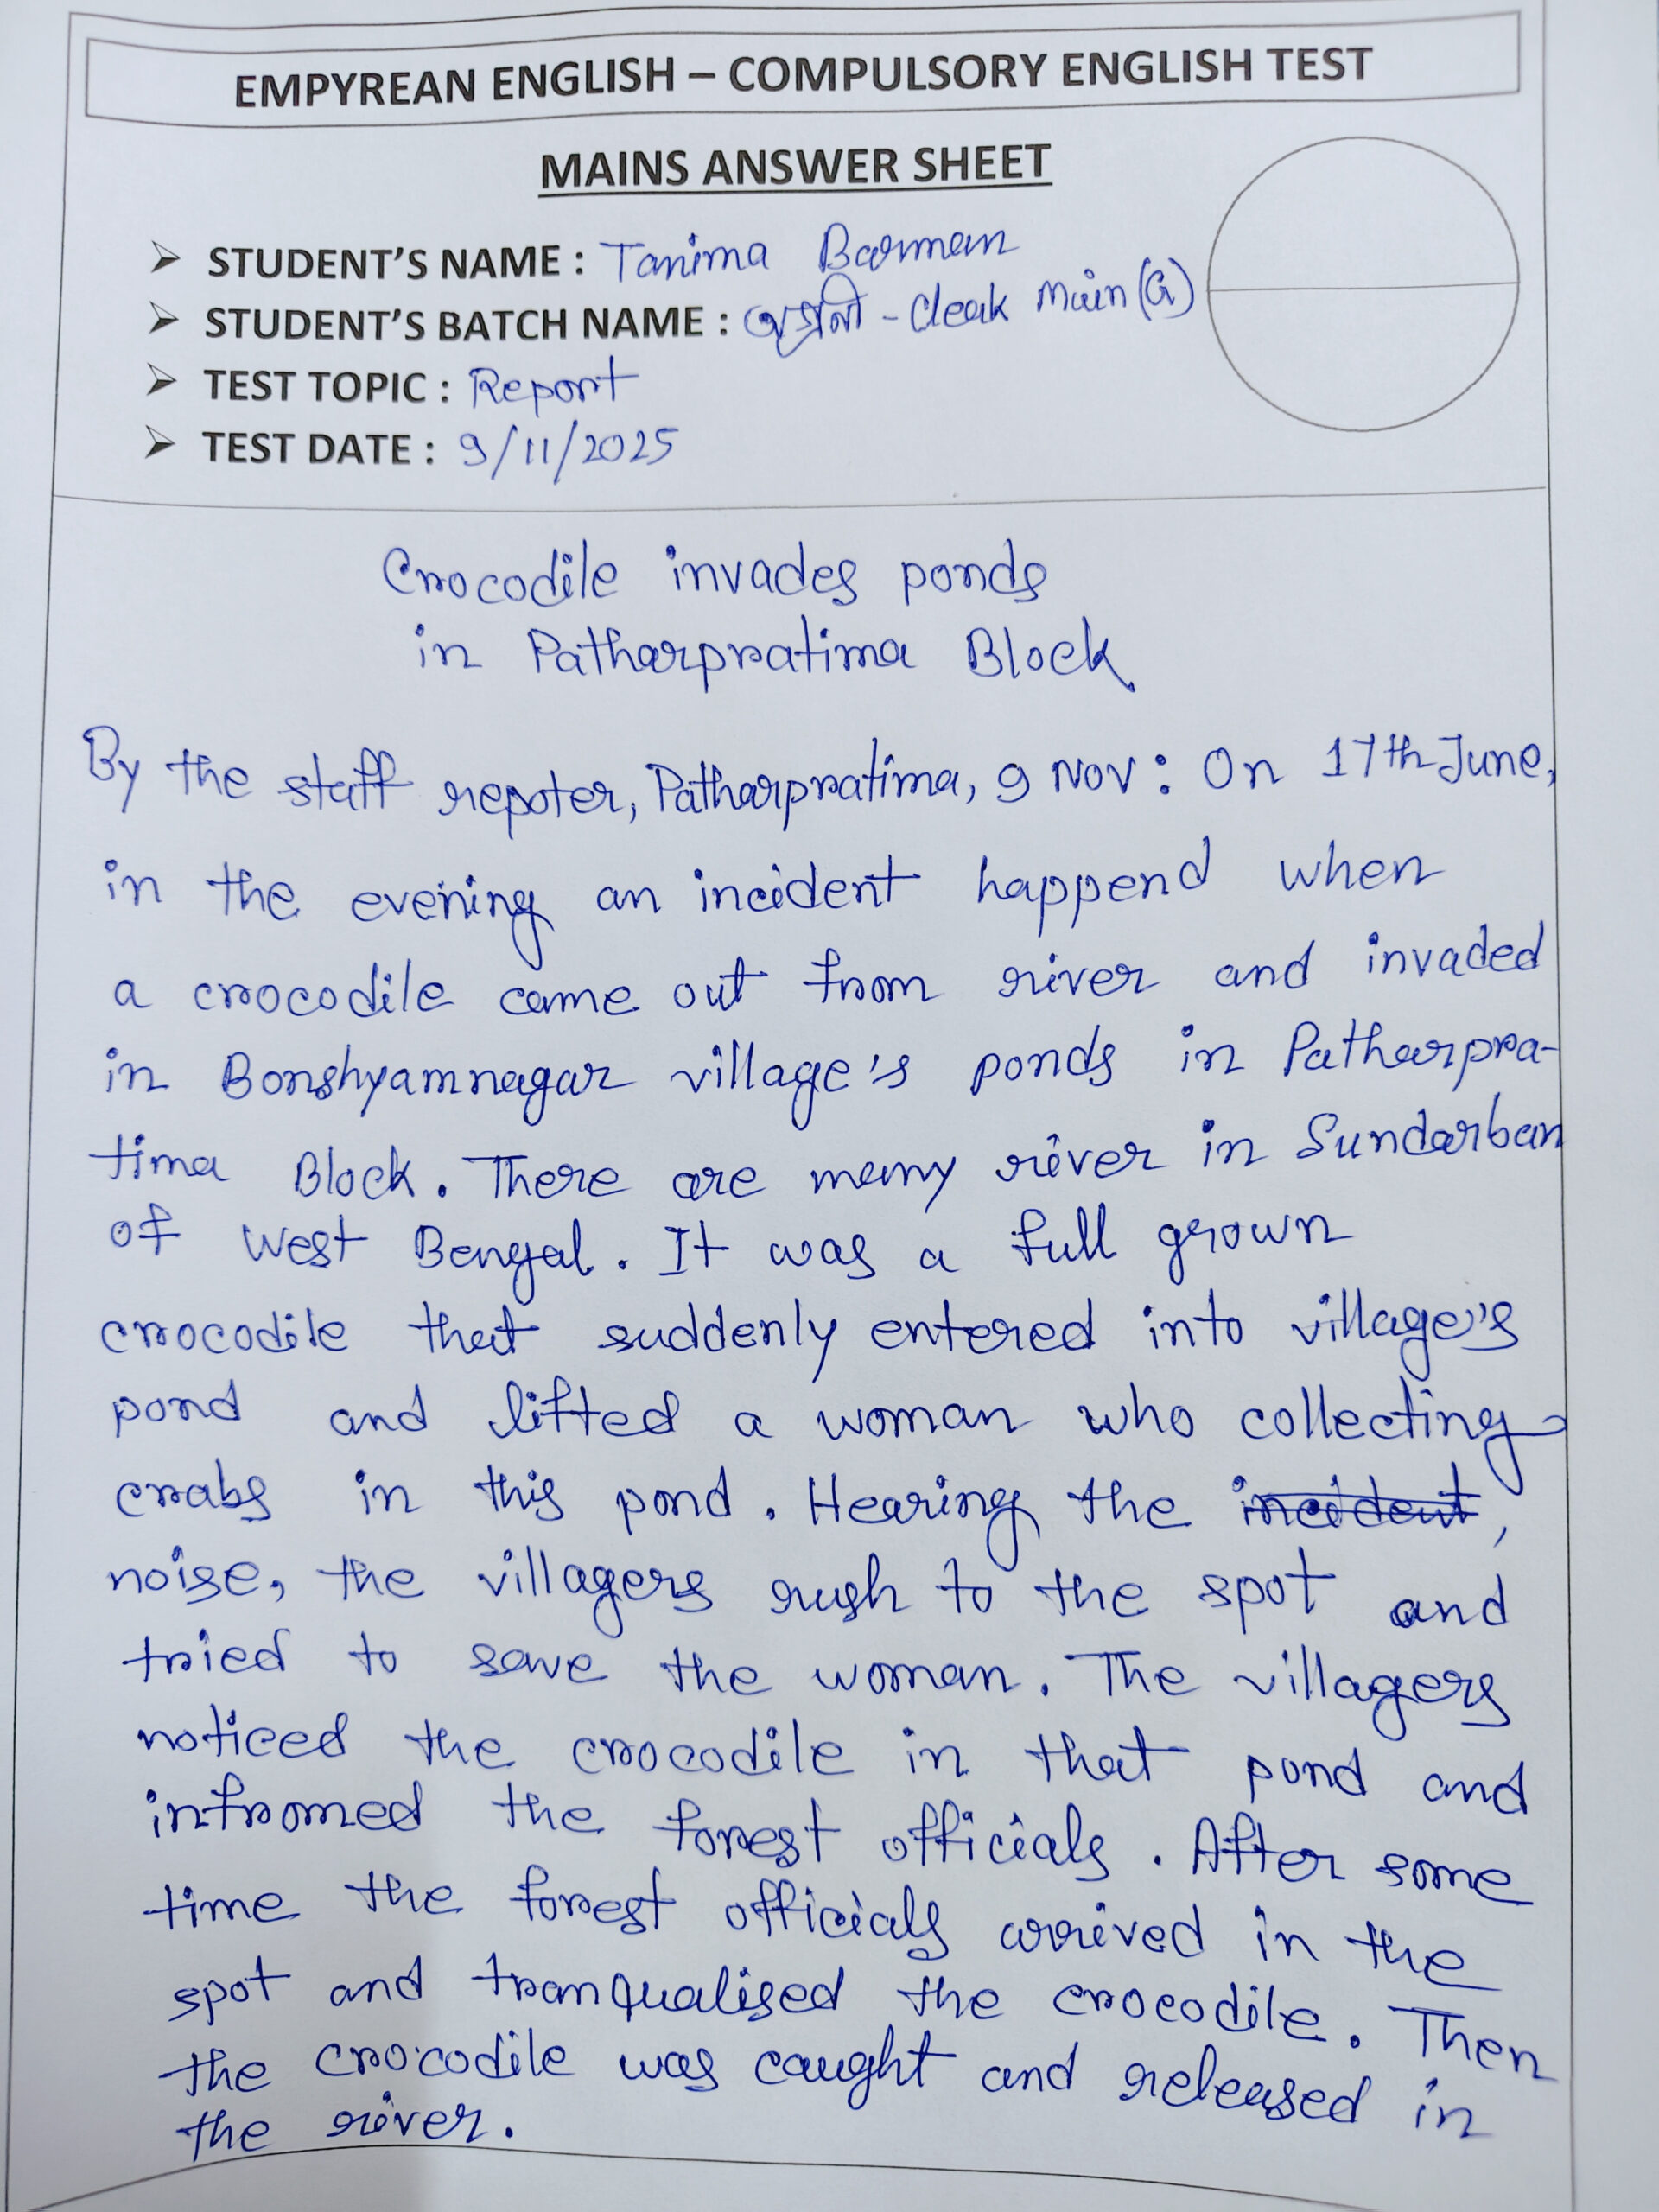 EMPYREAN ENGLISH – COMPULSORY ENGLISH TEST
MAINS ANSWER SHEET
➤ STUDENT'S NAME : Tanima Barman
➤ STUDENT'S BATCH NAME : - Cleak Main (G)
➤ TEST TOPIC : Report
➤ TEST DATE : 9/11/2025
Crocodile invades ponds
in Patharpratima Block
By the staff repoter, Patharpratima, 9 Nov : On 17th June,
in the evening an incident happend when
a crocodile came out from river and invaded
in Bonshyamnagar village's ponds in Patharpra-
tima Block. There are many river in Sundarban
of West Bengal. It was a full grown
crocodile that suddenly entered into village's
pond and lifted a woman who collecting
crabs in this pond. Hearing the incident,
noise, the villagers rush to the spot and
tried to save the woman. The villagers
noticed the crocodile in that pond and
infromed the forest officials. After some
time the forest officials arrived in the
spot and tranqualised the crocodile. Then
the crocodile was caught and released in
the river.